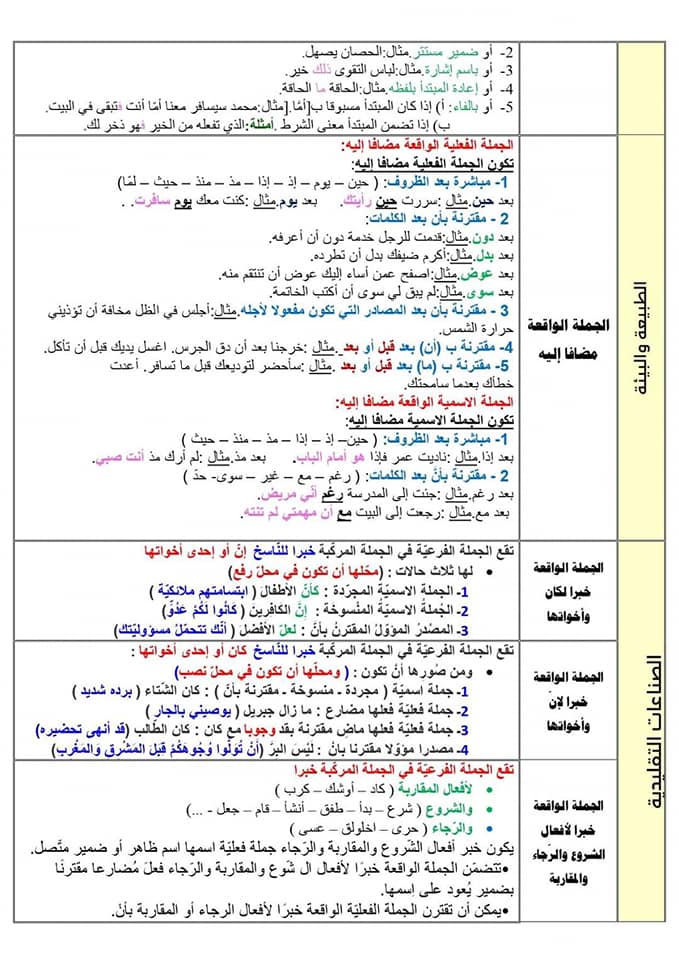 الطبيعة والبيئة
2- أو ضمير مستتر.مثال:الحصان يصهل.
3- أو باسم إشارة.مثال:لباس التقوى ذلك خير.
4- أو إعادة المبتدأ بلفظه.مثال:الحاقة ما الحاقة.
5- أو بالفاء: أ) إذا كان المبتدأ مسبوقا ب[أمّا.[مثال:محمد سيسافر معنا أمّا أنت فتبقى في البيت.
ب) إذا تضمن المبتدأ معنى الشرط .أمثلة:الذي تفعله من الخير فهو ذخر لك.
الجملة الواقعة
مضافا إليه
الجملة الفعلية الواقعة مضافا إليه:
تكون الجملة الفعلية مضافا إليه:
1- مباشرة بعد الظروف: ( حين – يوم – إذ – إذا – مذ – منذ – حيث – لمّا)
بعد حين.مثال: سررت حين رأيتك. بعد يوم.مثال :كنت معك يوم سافرت. .
2 - مقترنة بأن بعد الكلمات:
بعد دون.مثال:قدمت للرجل خدمة دون أن أعرفه.
بعد بدل.مثال:أكرم ضيفك بدل أن تطرده.
بعد عوض.مثال:اصفح عمن أساء إليك عوض أن تنتقم منه.
بعد سوى.مثال:لم يبق لي سوى أن أكتب الخاتمة.
3 - مقترنة بأن بعد المصادر التي تكون مفعولا لأجله.مثال:أجلس في الظل مخافة أن تؤذيني
حرارة الشمس.
4- مقترنة ب (أن) بعد قبل أو بعد .مثال :خرجنا بعد أن دق الجرس. اغسل يديك قبل أن تأكل.
5- مقترنة ب (ما) بعد قبل أو بعد .مثال :سأحضر لتوديعك قبل ما تسافر. أعدت
خطأك بعدما سامحتك.
الجملة الاسمية الواقعة مضافا إليه:
تكون الجملة الاسمية مضافا إليه:
1- مباشرة بعد الظروف: ( حين– إذ – إذا – مذ – منذ – حيث )
بعد إذا.مثال :ناديت عمر فإذا هو أمام الباب. بعد مذ.مثال :لم أرك مذ أنت صبي.
2 - مقترنة بأنّ بعد الكلمات: ( رغم – مع – غير – سوى- حدّ )
بعد رغم.مثال :جئت إلى المدرسة رغم أنّي مريض.
بعد مع.مثال :رجعت إلى البيت مع أن مهمتي لم تنته.
الصناعات التقليدية
الجملة الواقعة
خبرا لكان
وأخواتها
تقع الجملة الفرعيّة في الجملة المركّبة خبرا للنّاسخ إنّ أو إحدى أخواتها
• لها ثلاث حالات : (محّلها أن تكون في محلّ رفع)
1- الجملة الاسميّة المجرّدة : كأنّ الأطفال ( ابتسامتهم ملائكيّة )
2- الجُملةُ الاسميّة المَنسُوخة : إنَّ الكافِرينَ ( كَانُوا لَكُمْ عَدُوٍّ)
3- المصْدرُ المؤوّلُ المقترنُ بأنَّ : لعلّ الأفضلَ ( أنّك تتحمّلُ مسؤوليّتك)
الجملة الواقعة
خبرا لإنّ
وأخواتها
تقع الجملة الفرعيّة في الجملة المركّبة خبرا للنّاسخ كان أو إحدى أخواتها :
• ومن صُورها أنْ تكون : ( ومحلّها أن تكون في محل نصب)
1- جملة اسميّة ( مجردة - منسوخة - مقترنة بأنّ ) : كان الشّتاء ( برده شديد )
2- جملة فعليّة فعلها مضارع : ما زال جبريل ( يوصيني بالجار )
3- جملة فعليّة فعلها ماضٍ مقترنة بقد وجوبا مع كان : كان الطّالب (قد أنهى تحضيره)
4- مصدرا مؤوّلا مقترنا بأنْ : لَيْسَ البرَّ (أنْ تُوَلُّوا وُجُوهَكُمْ قِبلَ المَشْرِقِ وَالمَغْربِ)
الجملة الواقعة
خبرا لأفعال
الشروع والرّجاء
والمقاربة
تقع الجملة الفرعيّة في الجملة المركّبة خبرا
• لأفعال المقاربة ( كاد – أوشك – كرب )
• والشروع ( شرع – بدأ – طفق – أنشأ – قام – جعل - ...)
• والرّجاء ( حرى – اخلولق – عسى )
يكون خبر أفعال الشّروع والمقاربة والرّجاء جملة فعليّة اسمها اسم ظاهر أو ضمير متّصل.
•تتضمّن الجملة الواقعة خبرًا لأفعال ال شّوع والمقاربة والرّجاء فعلً مُضارعا مقترنًا
بضمير يُعود على إسمها.
•يمكن أن تقترن الجملة الفعليّة الواقعة خبرًا لأفعال الرجاء أو المقاربة بأنْ.